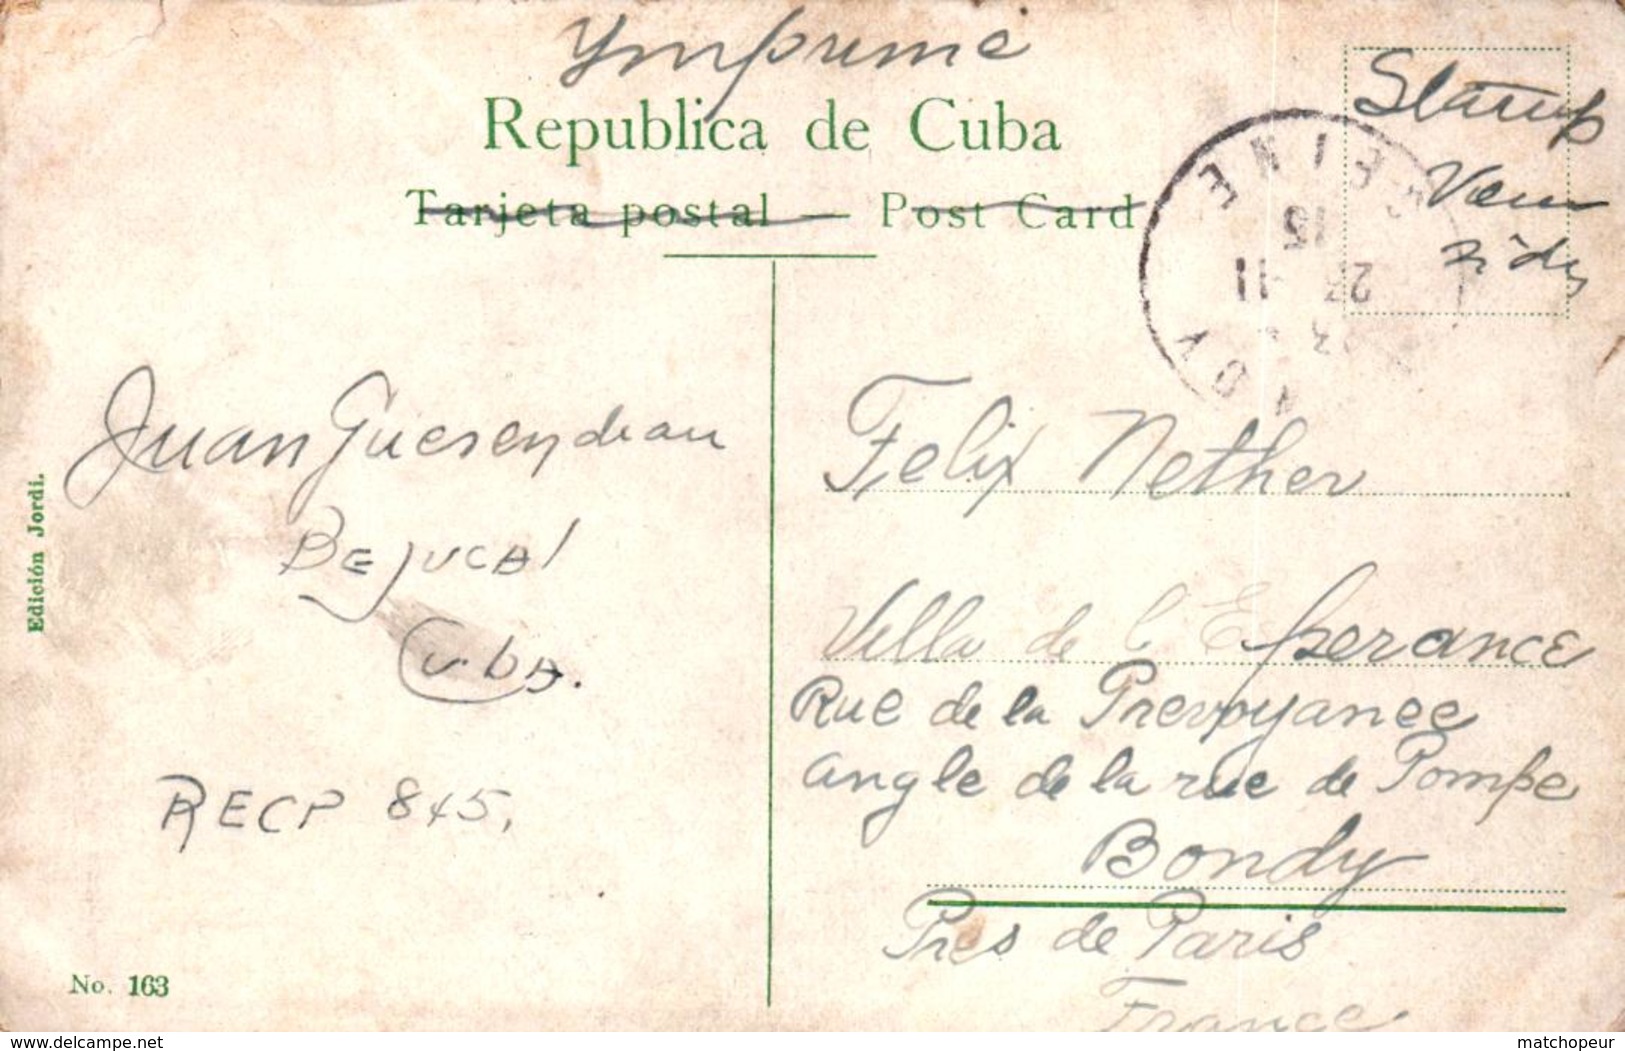 Ymprime
Republica de Cuba
Tarjeta postal — Post Card
Stamp
View
side
SEINE
15
23 -11
Edición Jordi.
Juan
Bejucal
Cuba.
RECP 845.
No. 163
Felix Nether
Villa de l'Esperance
Rue de la Prevoyance
angle de la rue de Pompe
Bondy
Pres de Paris
France
delcampe.net
matchopeur